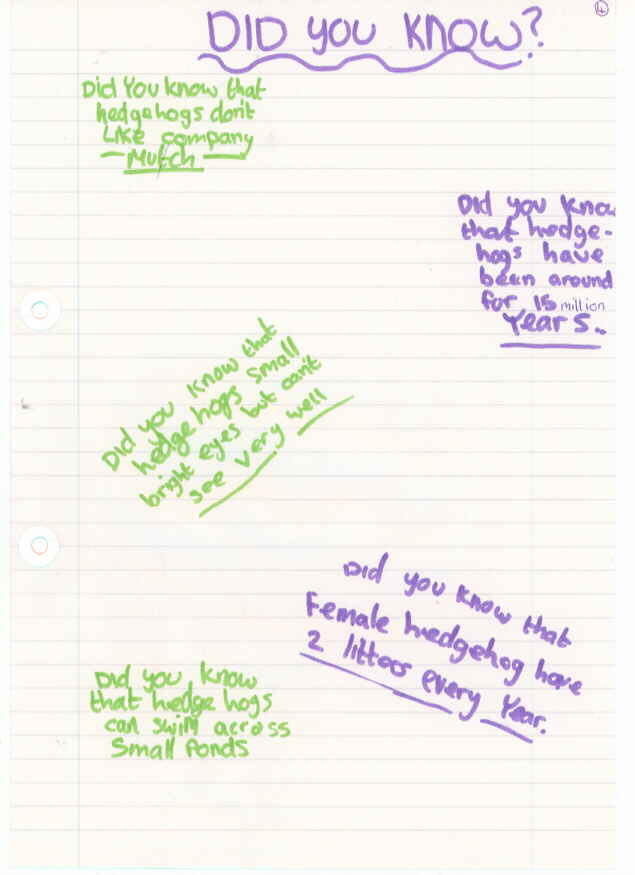 4
DID YOU KNOW?
Did You know that
hedgehogs don't
LIKE company
Mutch
Did you know
that hedge-
hogs have
been around
for 15 million
Years.
Did you know that
hedge hogs small
bright eyes but can't
see very well
Did you know that
Female hedgehog have
2 littos every Year.
Did you know
that hedge hogs
can swim across
Small Ponds